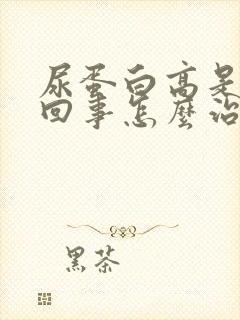 尿蛋白高是
回事怎麼治
黑茶